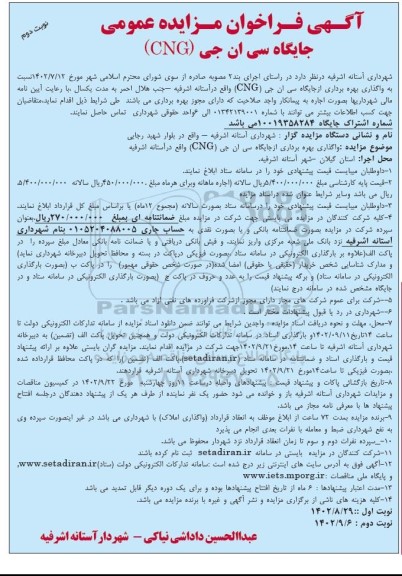 نوبت دوم
آگـهی فـراخوان مـزایده عمومی
جایگاه سی ان جی (CNG)
شهرداری آستانه اشرفیه درنظر دارد در راستای اجرای بند۲ مصوبه صادره از سوی شورای محترم اسلامی شهر مورخ ۱۴۰۲/۷/۱۲نسبت
به واگذاری بهره برداری ازجایگاه سی ان جی (CNG) واقع درآستانه اشرفیه –جنب هلال احمر به مدت یکسال ،با رعایت آیین نامه
مالی شهرداریها بصورت اجاره به پیمانکار واجد صلاحیت که دارای مجوز بهره برداری می باشند طی شرایط ذیل اقدام نماید،متقاضیان
جهت کسب اطلاعات بیشتر با شماره ۰۱۳۴۲۱۳۹۰۰۱ الی ۴واحد حقوقی شهرداری تماس حاصل نمایند.
شماره اشتراک جایگاه ۱۰۰۱۹۳۵۸۲۸۴می باشد
نام و نشانی دستگاه مزایده گزار : شهرداری آستانه اشرفیه – واقع در بلوار شهید رجایی
موضوع مزایده :واگذاری بهره برداری ازجایگاه سی ان جی (CNG) واقع درآستانه اشرفیه
محل اجرا: استان گیلان –شهر آستانه اشرفیه.
۱-داوطلبان میبایست قیمت پیشنهادی خود را در سامانه ستاد ابلاغ نمایند.
۲-قیمت پایه کارشناسی مبلغ ۵/۴۰۰/۰۰۰/۰۰۰ریال سالانه (اجاره ماهانه وبرای هرماه مبلغ ۴۵۰/۰۰۰/۰۰۰ریال سالانه ۵/۴۰۰/۰۰۰/۰۰۰
ریال می باشد وسایر شرایط عنوان شده دراسناد مزایده
۳-داوطلبان میبایست قیمت پیشنهادی خود را درسامانه ستاد بصورت سالانه (مجموع ۱۲ماه) یا براساس مبلغ کل قرارداد ابلاغ نمایند.
۴-کلیه شرکت کنندگان در مزایده می بایستی جهت شرکت در مزایده مبلغ ضمانتنامه ای بمبلغ ۲۷۰/۰۰۰/۰۰۰ریال،بعنوان
سپرده شرکت در مزایده بصورت ضمانتنامه بانکی و یا بصورت نقدی به حساب جاری ۰۱۰۵۲۰۴۰۸۸۰۰۵ بنام شهرداری
آستانه اشرفیه نزد بانک ملی شعبه مرکزی واریز نمایند، و فیش بانکی دریافتی و یا ضمانت نامه بانکی معادل مبلغ سپرده را در
پاکت الف(علاوه بر بارگذاری الکترونیکی در سامانه ستاد بصورت فیزیکی دریاکت در بسته و محافظ تحویل دبیرخانه شهرداری نماید)
و مدارک شناسایی شخص خریدار (حقیقی یا حقوقی) امضا شده(در صورت شخص حقوقی ممهور) را در پاکت ب (بصورت بارگذاری
الکترونیکی در سامانه ستاد) و برگه پیشنهاد قیمت را به عدد و حروف در پاکت ج (بصورت بارگذاری الکترونیکی در سامانه ستاد و در
جایگاه مشخص شده در سامانه درج نمایند)
۵-شرکت برای عموم شرکت های مجاز دارای مجوز ازشرکت فراورده های نفتی آزاد می باشد .
۶-شهرداری در رد یا قبول پیشنهادات مختار است .
۷-محل، مهلت و نحوه دریافت اسناد مزایده: واجدین شرایط می توانند ضمن دانلود اسناد مزایده از سامانه تدارکات الکترونیکی دولت تا
ساعت ۱۴تاریخ۱۴۰۲/۰۹/۱۱و بارگذاری اسناد در سامانه تدارکات الکترونیکی دولت و همچنین تحویل پاکت الف (تضمین) به دبیرخانه
شهرداری آستانه اشرفیه تا ساعت ۱۴ مورخ۱۴۰۲/۹/۲۱جهت شرکت در مزایده اقدام نمایند. مزایده گران بایستی علاوه بر ارائه پیشنهاد
قیمت و بارگذاری اسناد و ضمانتنامه در سامانه ستاد (setadiran.ir)پاکت الف (تضمین )راکه در پاکت محافظ قرارداده شده
،بصورت فیزیکی تا ساعت۱۴مورخ ۱۴۰۲/۹/۲۱ تحویل دبیرخانه شهرداری آستانه اشرفیه قراردهند.
۸-تاریخ بازگشائی پاکات و پیشنهاد قیمت: پیشنهادهای واصله درساعت ۱۱روز چهارشنبه مورخ ۱۴۰۲/۹/۲۲ در کمیسیون مناقصات
و مزایدات شهرداری آستانه اشرفیه باز و خوانده می شود حضور یک نفر نماینده از طرف هر یک از پیشنهاد دهندگان درجلسه افتتاح
پیشنهاد ها با معرفی نامه مجاز می باشد.
۹-برنده مزایده بمدت ۷۲ ساعت از ابلاغ موظف به انعقاد قرارداد (واگذاری املاک) با شهرداری می باشد در غیر اینصورت سپرده وی
به نفع شهرداری ضبط و معامله با نفرات بعدی انجام می پذیرد
۱۰–سپرده نفرات دوم و سوم تا زمان انعقاد قرارداد نزد شهردار محفوظ می باشد.
۱۱-شرکت کنندگان در مزایده بایستی در سامانه setadiran.ir ثبت نام کرده باشند
۱۲-آگهی فوق به آدرس سایت های اینترنتی زیر درج شده است :سامانه تدارکات الکترونیکی دولت (ستاد)www.setadiran.ir،
و پایگاه ملی مناقصات :www.iets.mporg.ir
۱۳-مدت اعتبار پیشنهادها : ۶ ماه از تاریخ افتتاح پیشنهادها بوده و برای یک دوره دیگر قابل تمدید می باشد
۱۴-کلیه هزینه های ناشی از برگزاری مزایده و نشر آگهی و غیره با برنده مزایده می باشد.
نوبت اول :۱۴۰۲/۸/۲۹
نوبت دوم : ۱۴۰۲/۹/۶
عبدالحسین داداشی نیاکی – شهردار آستانه اشرفیه
ParsNamadData